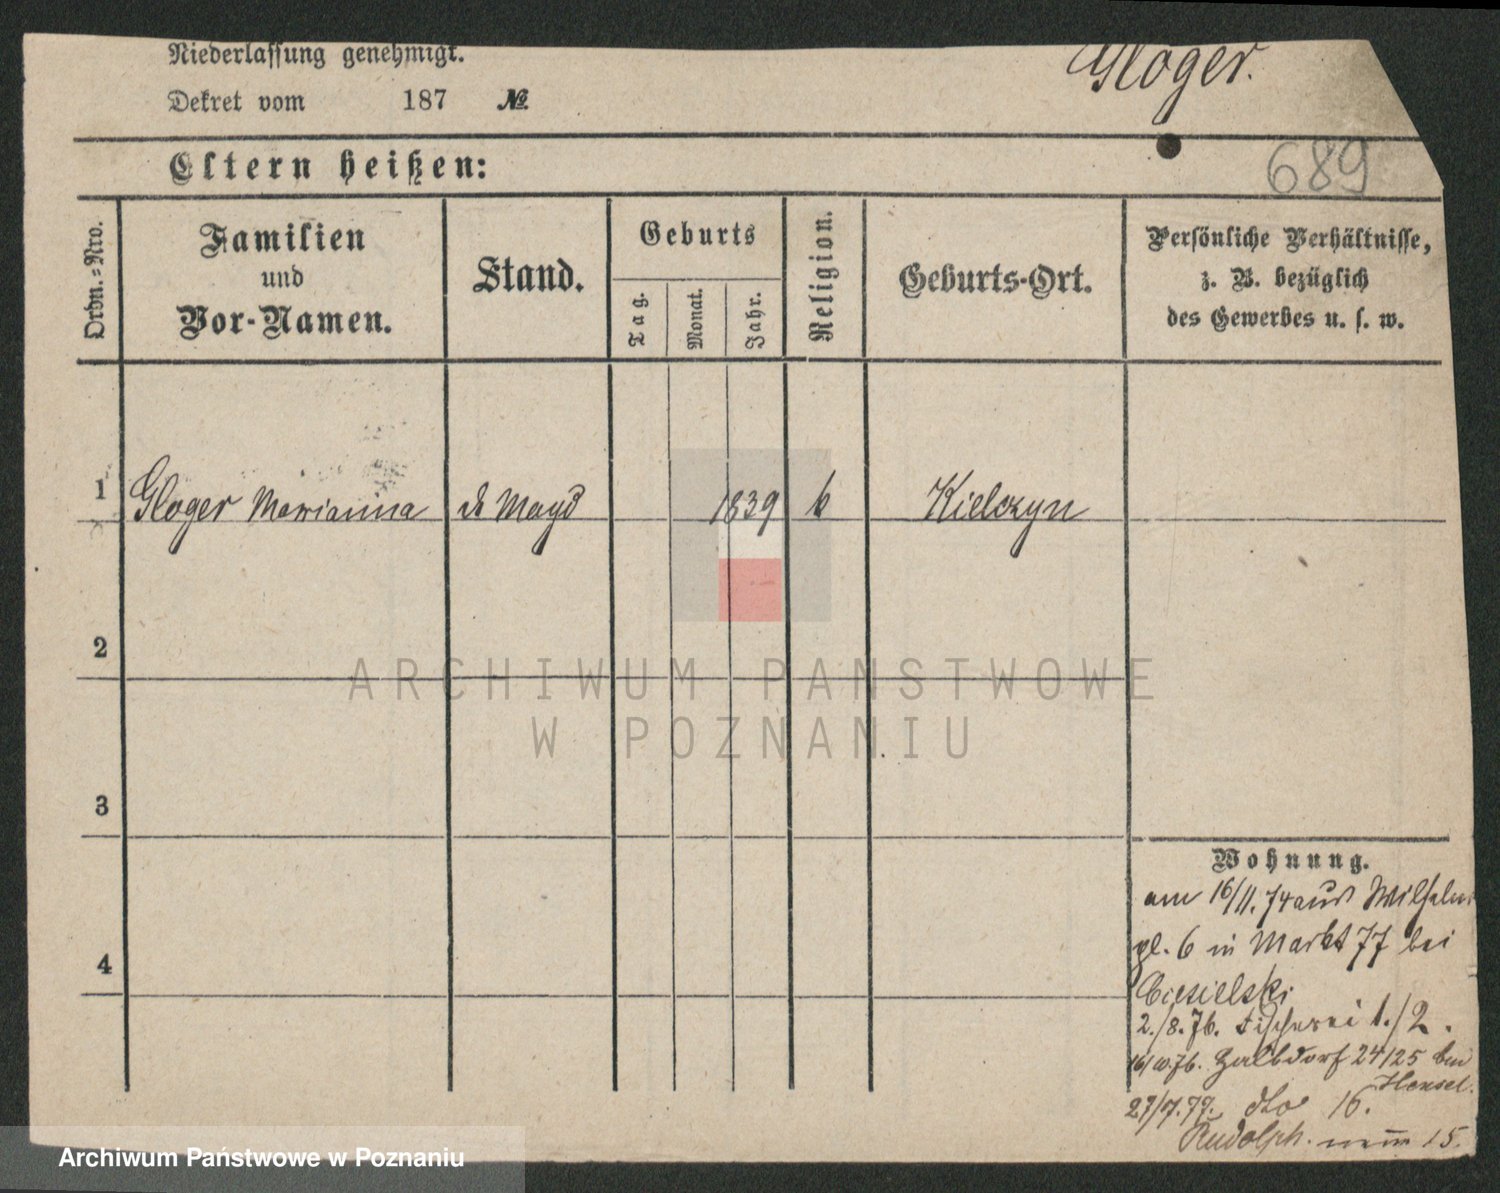 Niederlassung genehmigt.
Dekret vom 187 №
Gloger.
689
Eltern heißen:
Ordn.=Nro.
Familien
und
Vor-Namen.
Stand.
Geburts
Tag.
Monat.
Jahr.
Religion.
Geburts-Ort.
Persönliche Verhältnisse,
z. B. bezüglich
des Gewerbes u. s. w.
1 Gloger Marianna d. Magd 1839 k Kielczyn
2
3
4
ARCHIWUM PAŃSTWOWE
W POZNANIU
Wohnung.
am 16/11.74 aus Wilhelms
pl. 6 in Markt 77 bei
Ciesielski
2./8.76. Fischerei 1./2.
Halbdorf 24/25 bei
Hensel.
27/7.77. dto 16.
Rudolph. 15.
Archiwum Państwowe w Poznaniu